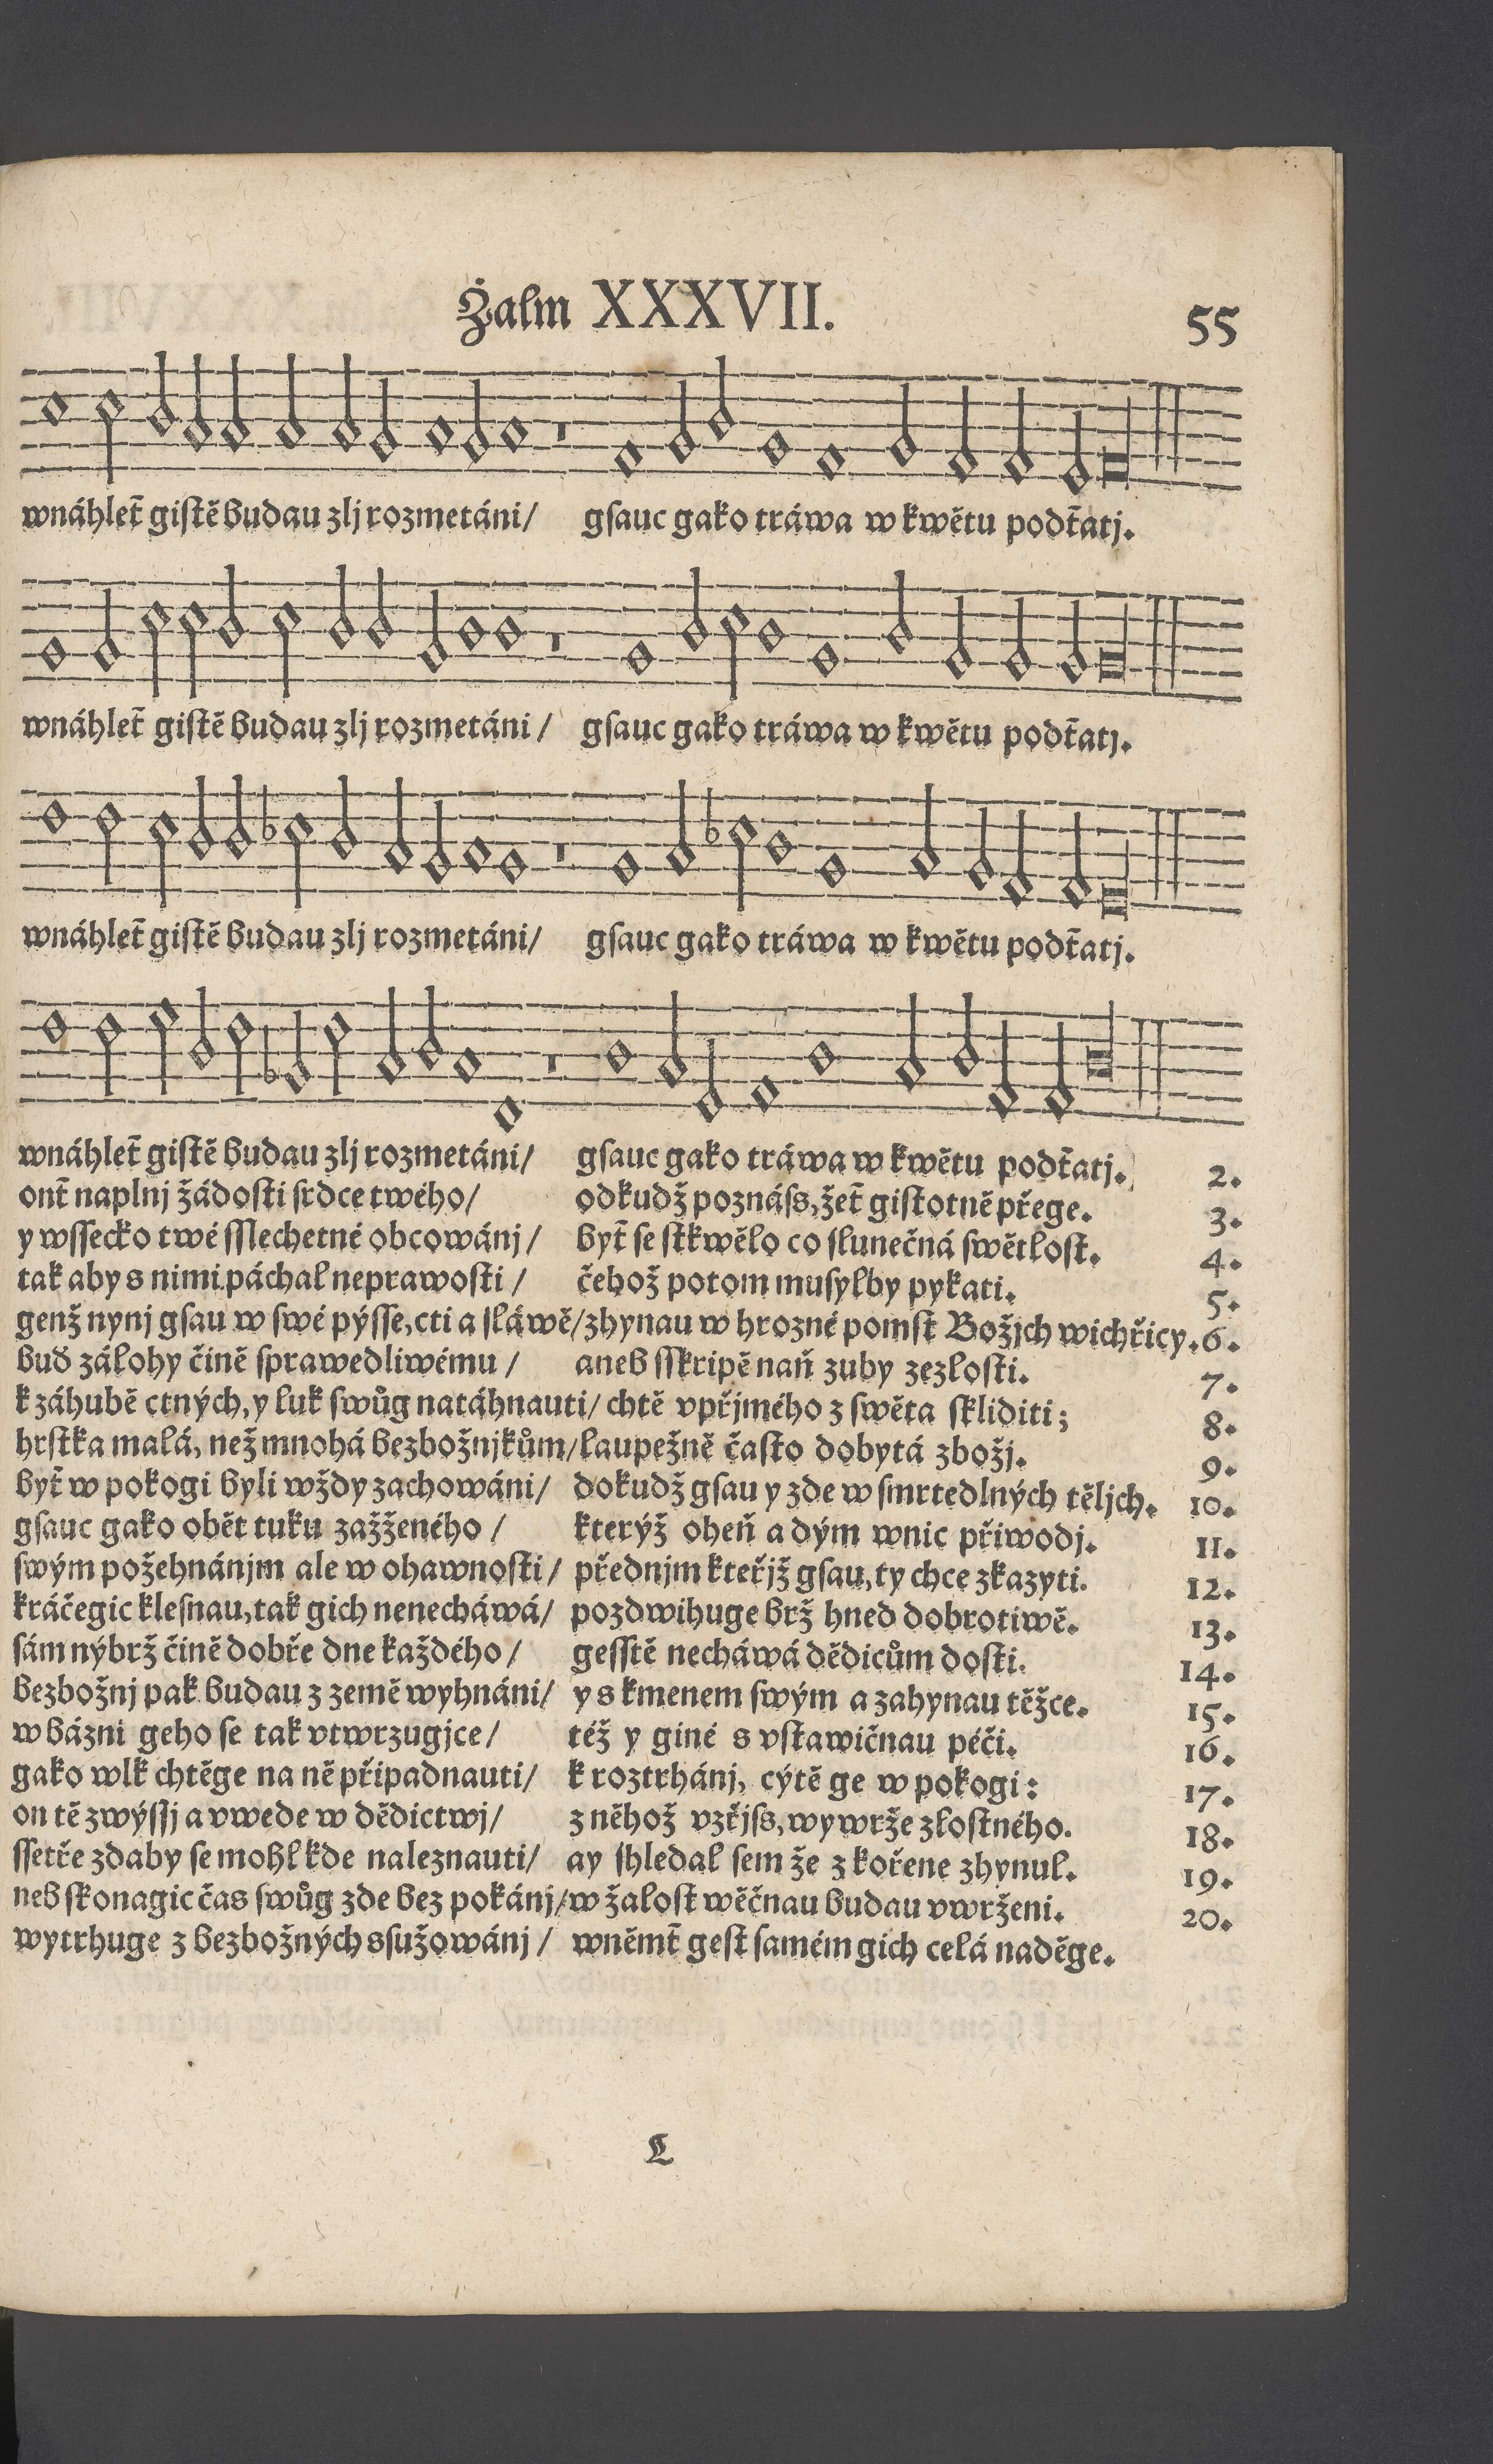 Žalm XXXVII.
55
wnáhleť gistě budau zlj rozmetáni/ gsauc gako tráwa w kwětu podťatj.
wnáhleť gistě budau zlj rozmetáni/ gsauc gako tráwa w kwětu podťatj.
wnáhleť gistě budau zlj rozmetáni/ gsauc gako tráwa w kwětu podťatj.
wnáhleť gistě budau zlj rozmetáni/ gsauc gako tráwa w kwětu podťatj. 2.
onť naplnj žádosti srdce twého/ odkudž poznáss, žeť gistotně přege. 3.
y wssecko twé sslechetné obcowánj/ byť se stkwělo co slunečná swětlost. 4.
tak aby s nimi páchal neprawosti/ čehož potom musylby pykati. 5.
genž nynj gsau w swé pýsse, cti a sláwě/ zhynau w hrozné pomst Božjch wichřicy. 6.
buď zálohy čině sprawedliwému/ aneb sskripě naň zuby zezlosti. 7.
k záhubě ctných, y luk swůg natáhnauti/ chtě vpřjmého z swěta skliditi; 8.
hrstka malá, než mnohá bezbožnjkům/ laupežně často dobytá zbožj. 9.
byť w pokogi byli wždy zachowáni/ dokudž gsau y zde w smrtedlných těljch. 10.
gsauc gako oběť tuku zažženého/ kterýž oheň a dým wnic přiwodj. 11.
swým požehnánjm ale w ohawnosti/ přednjm kteřjž gsau, ty chce zkazyti. 12.
kráčegic klesnau, tak gich nenecháwá/ pozdwihuge brž hned dobrotiwě. 13.
sám nýbrž čině dobře dne každého/ gesstě necháwá dědicům dosti. 14.
bezbožnj pak budau z země wyhnáni/ y s kmenem swým a zahynau těžce. 15.
w bázni geho se tak vtwrzugjce/ též y giné s vstawičnau péči. 16.
gako wlk chtěge na ně připadnauti/ k roztrhánj, cýtě ge w pokogi: 17.
on tě zwýssj a vwede w dědictwj/ z něhož vzřjss, wywrže zlostného. 18.
ssetře zdaby se mohl kde naleznauti/ ay shledal sem že z kořene zhynul. 19.
neb skonagic čas swůg zde bez pokánj/ w žalost wěčnau budau vwrženi. 20.
wytrhuge z bezbožných ssužowánj/ wněmť gest samém gich celá naděge.
L